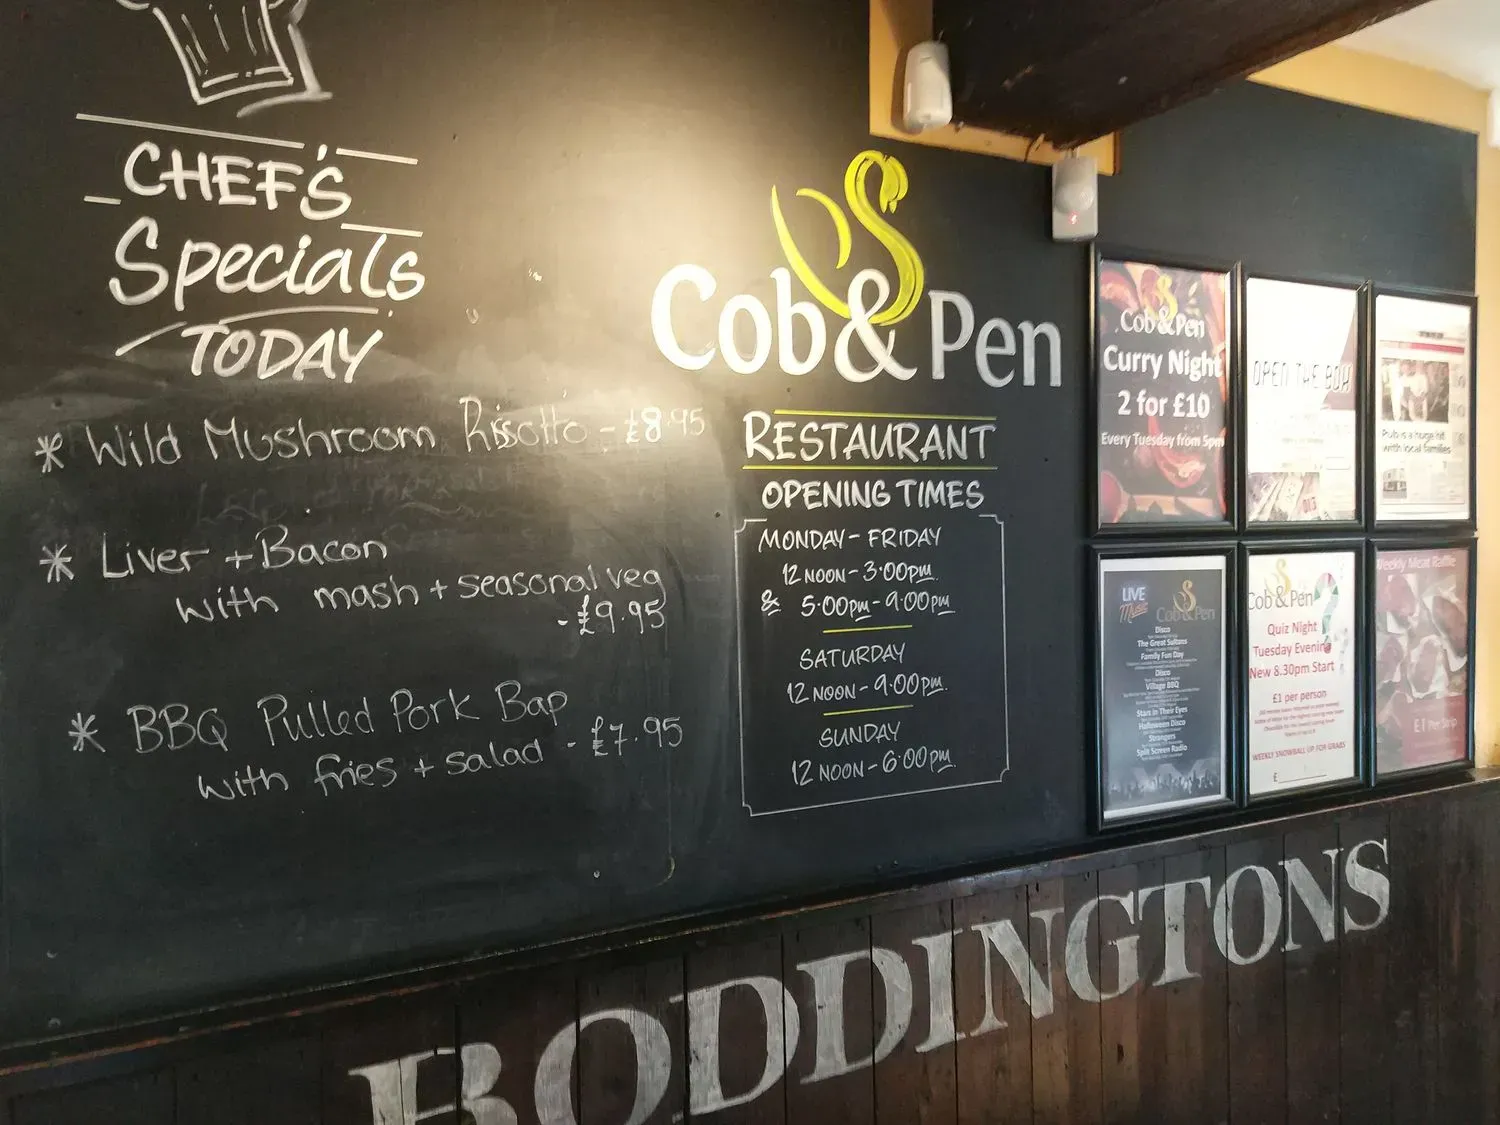 CHEF'S
Specials
TODAY
* Wild Mushroom Risotto - £8.95
* Liver + Bacon
with mash + seasonal veg
- £9.95
* BBQ Pulled Pork Bap
with fries + salad - £7.95
Cob & Pen
RESTAURANT
OPENING TIMES
MONDAY - FRIDAY
12 NOON - 3·00pm
& 5·00pm - 9·00pm
SATURDAY
12 NOON - 9·00pm
SUNDAY
12 NOON - 6·00pm
Cob & Pen
Curry Night
2 for £10
Every Tuesday from 5pm
OPEN THE BOX
Pub is a huge hit
with local families
LIVE
Music
Cob & Pen
Disco
The Great Sultans
Family Fun Day
Disco
Village BBQ
Stars in Their Eyes
Halloween Disco
Strangers
Split Screen Radio
Cob & Pen
Quiz Night
Tuesday Evening
New 8.30pm Start
£1 per person
WEEKLY SNOWBALL UP FOR GRABS
£
Weekly Meat Raffle
£1 Per Strip
BODDINGTONS